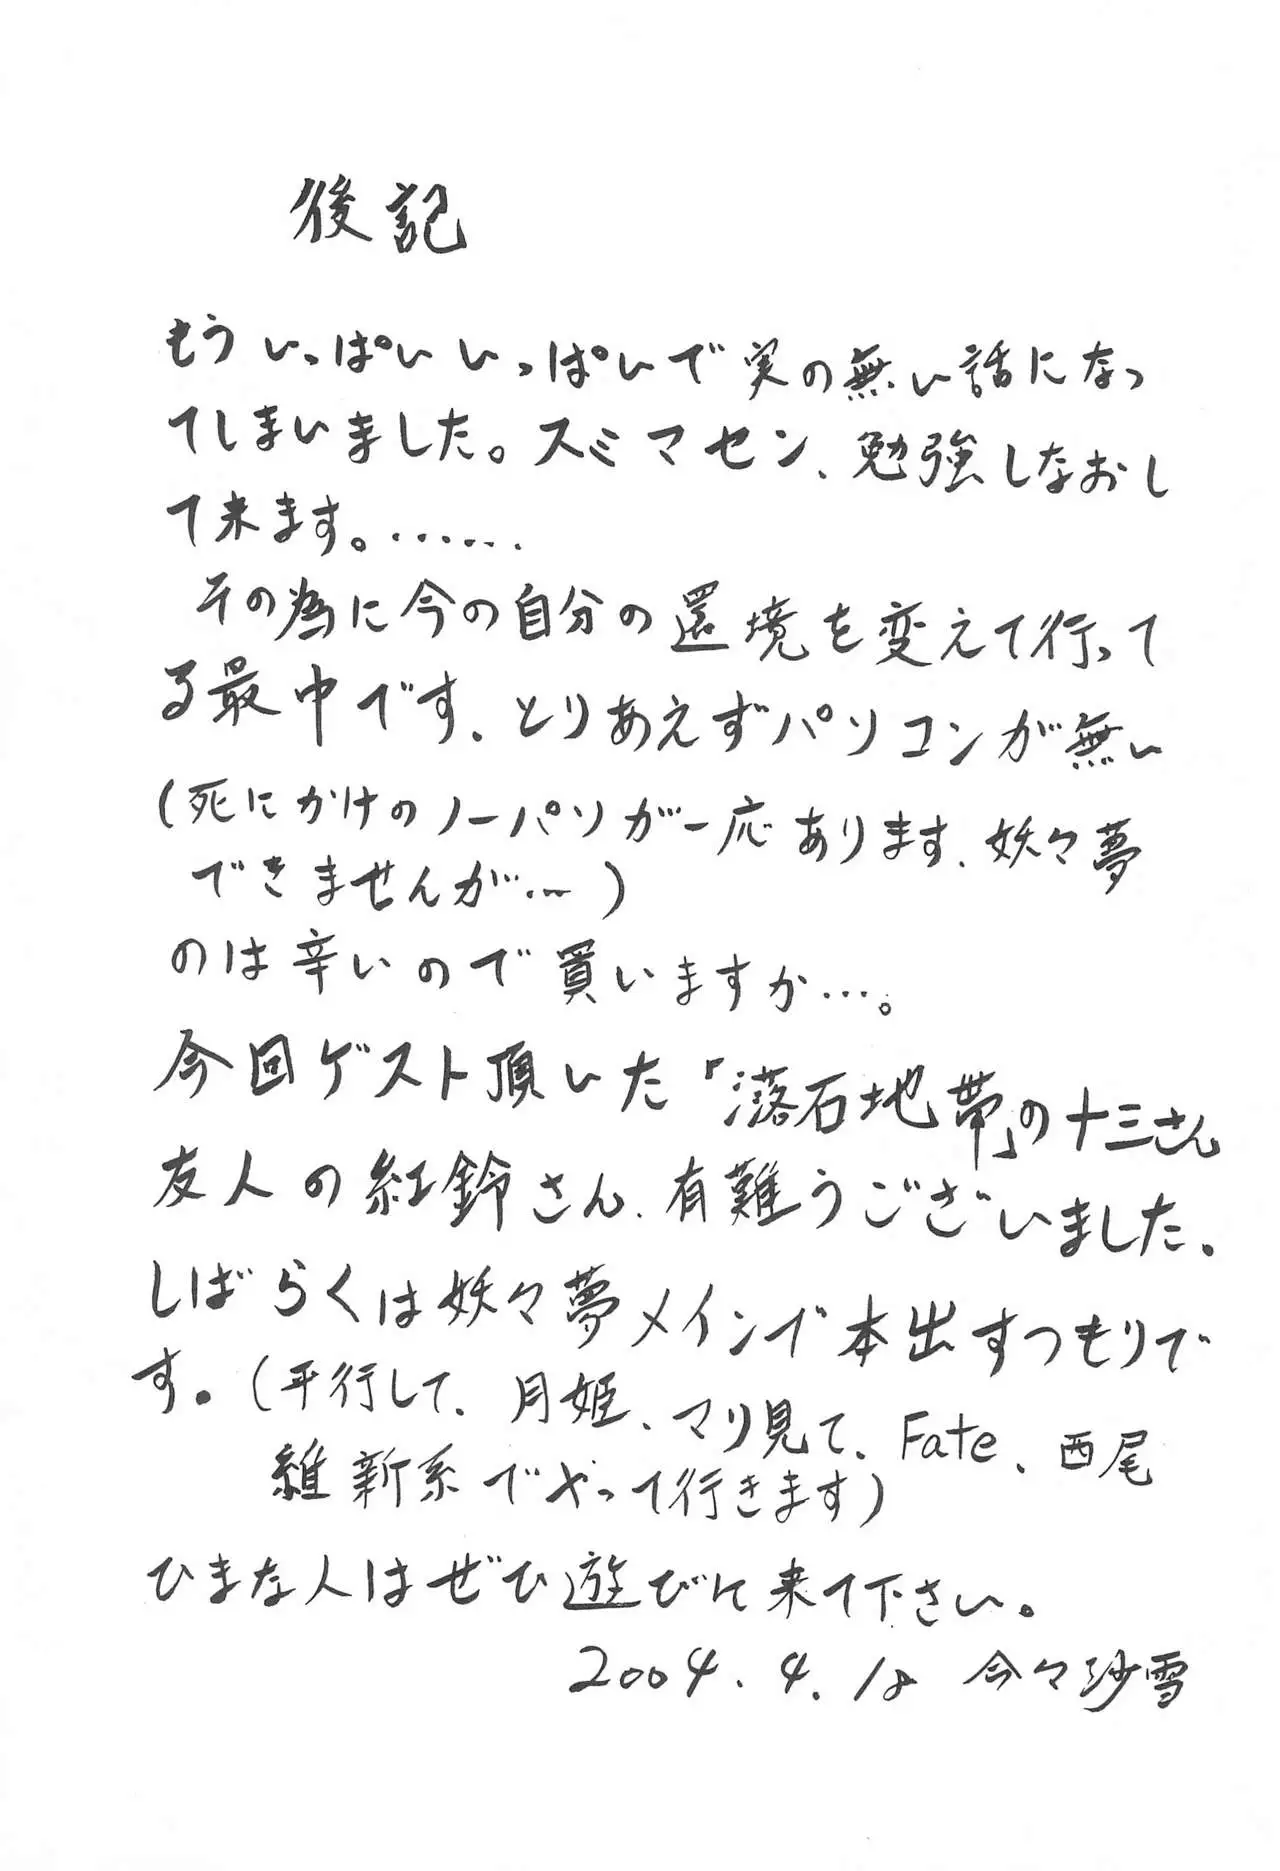 後記
もういっぱいいっぱいで実の無い話になっ
てしまいました。スミマセン、勉強しなおし
て来ます。……
その為に今の自分の環境を変えて行って
る最中です、とりあえずパソコンが無い
(死にかけのノーパソが一応あります、妖々夢
できませんが…)
のは辛いので買いますか…。
今回ゲスト頂いた「落石地帯」の十三さん
友人の紅鈴さん、有難うございました。
しばらくは妖々夢メインで本出すつもりで
す。(平行して、月姫、マリ見て、Fate、西尾
維新系でやって行きます)
ひまな人はぜひ遊びに来て下さい。
2004.4.18 今々沙雪